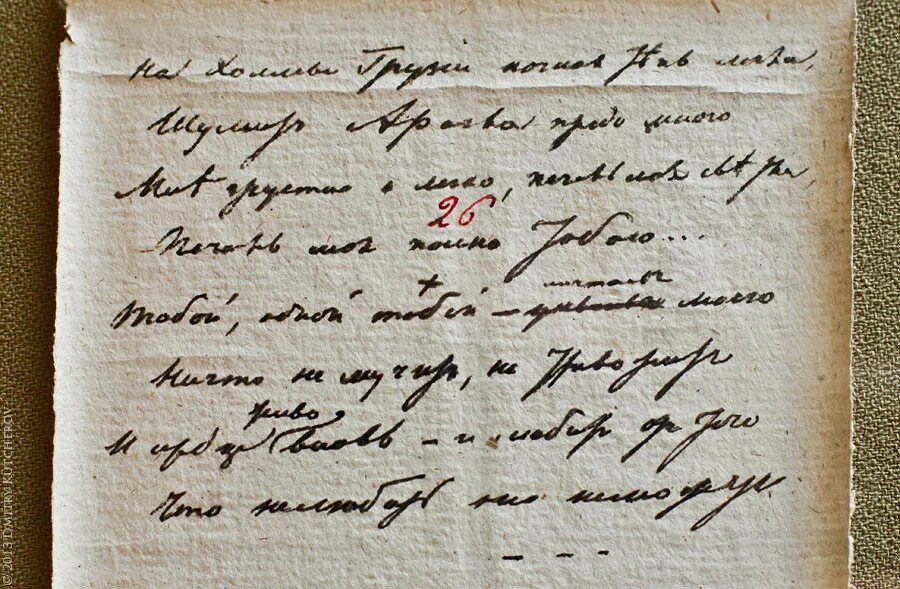 на холмы Грузiи ночная тѣнь легла,
Шумитъ Арагва предо мною
Мнѣ грустно и легко, печаль моя свѣтла,
26
Печаль моя полна Тобою...
+
Тобой, одной тобой — моего
Ничто не мучитъ, не тревожитъ
И сердце вновь — и любитъ отъ того
Что не любить оно не можетъ
- - -
© 2013 DMITRY KUTCHERGIV